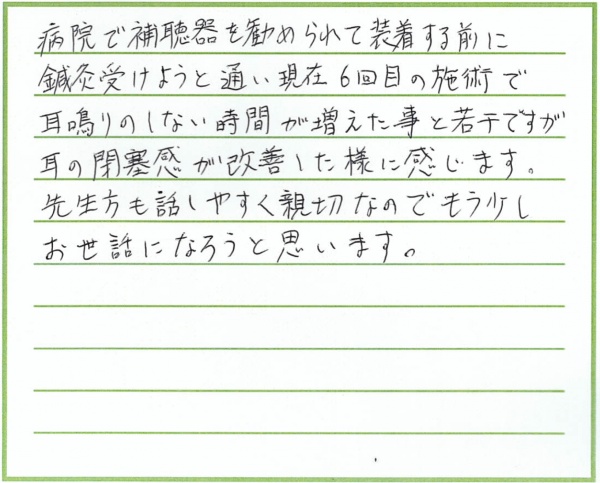 病院で補聴器を勧められて装着する前に
鍼灸受けようと通い現在6回目の施術で
耳鳴りのしない時間が増えた事と若干ですが
耳の閉塞感が改善した様に感じます。
先生方も話しやすく親切なのでもう少し
お世話になろうと思います。